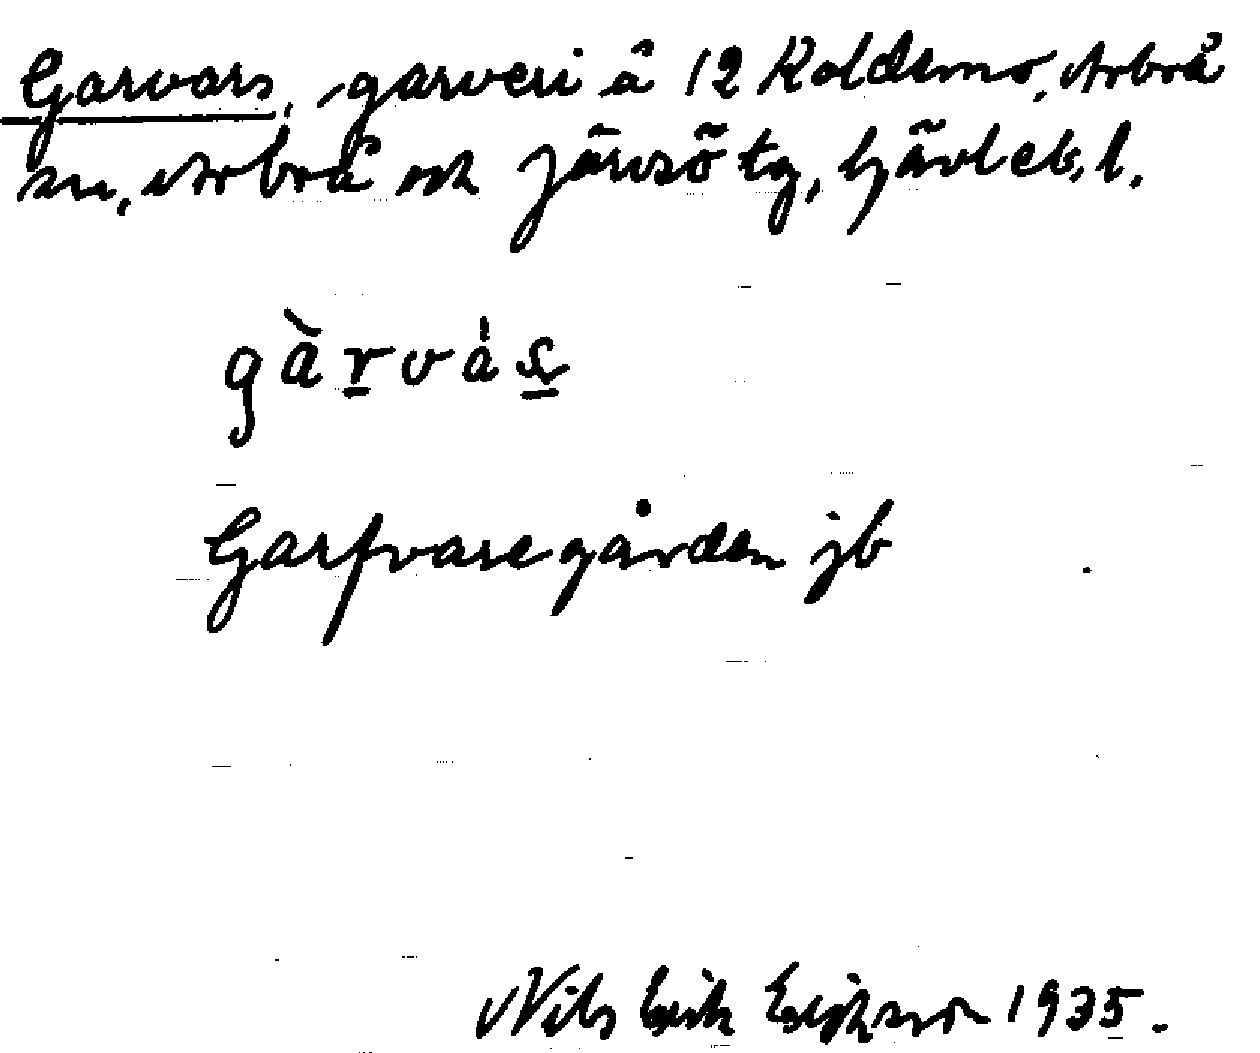 Garvars, garveri å 12 Koldemo, Arbrå
sn, Arbrå och Järvsö tg, Gävleb. l.
gàrvás
Garfvaregården jb
Nils Erik Eriksson 1935.